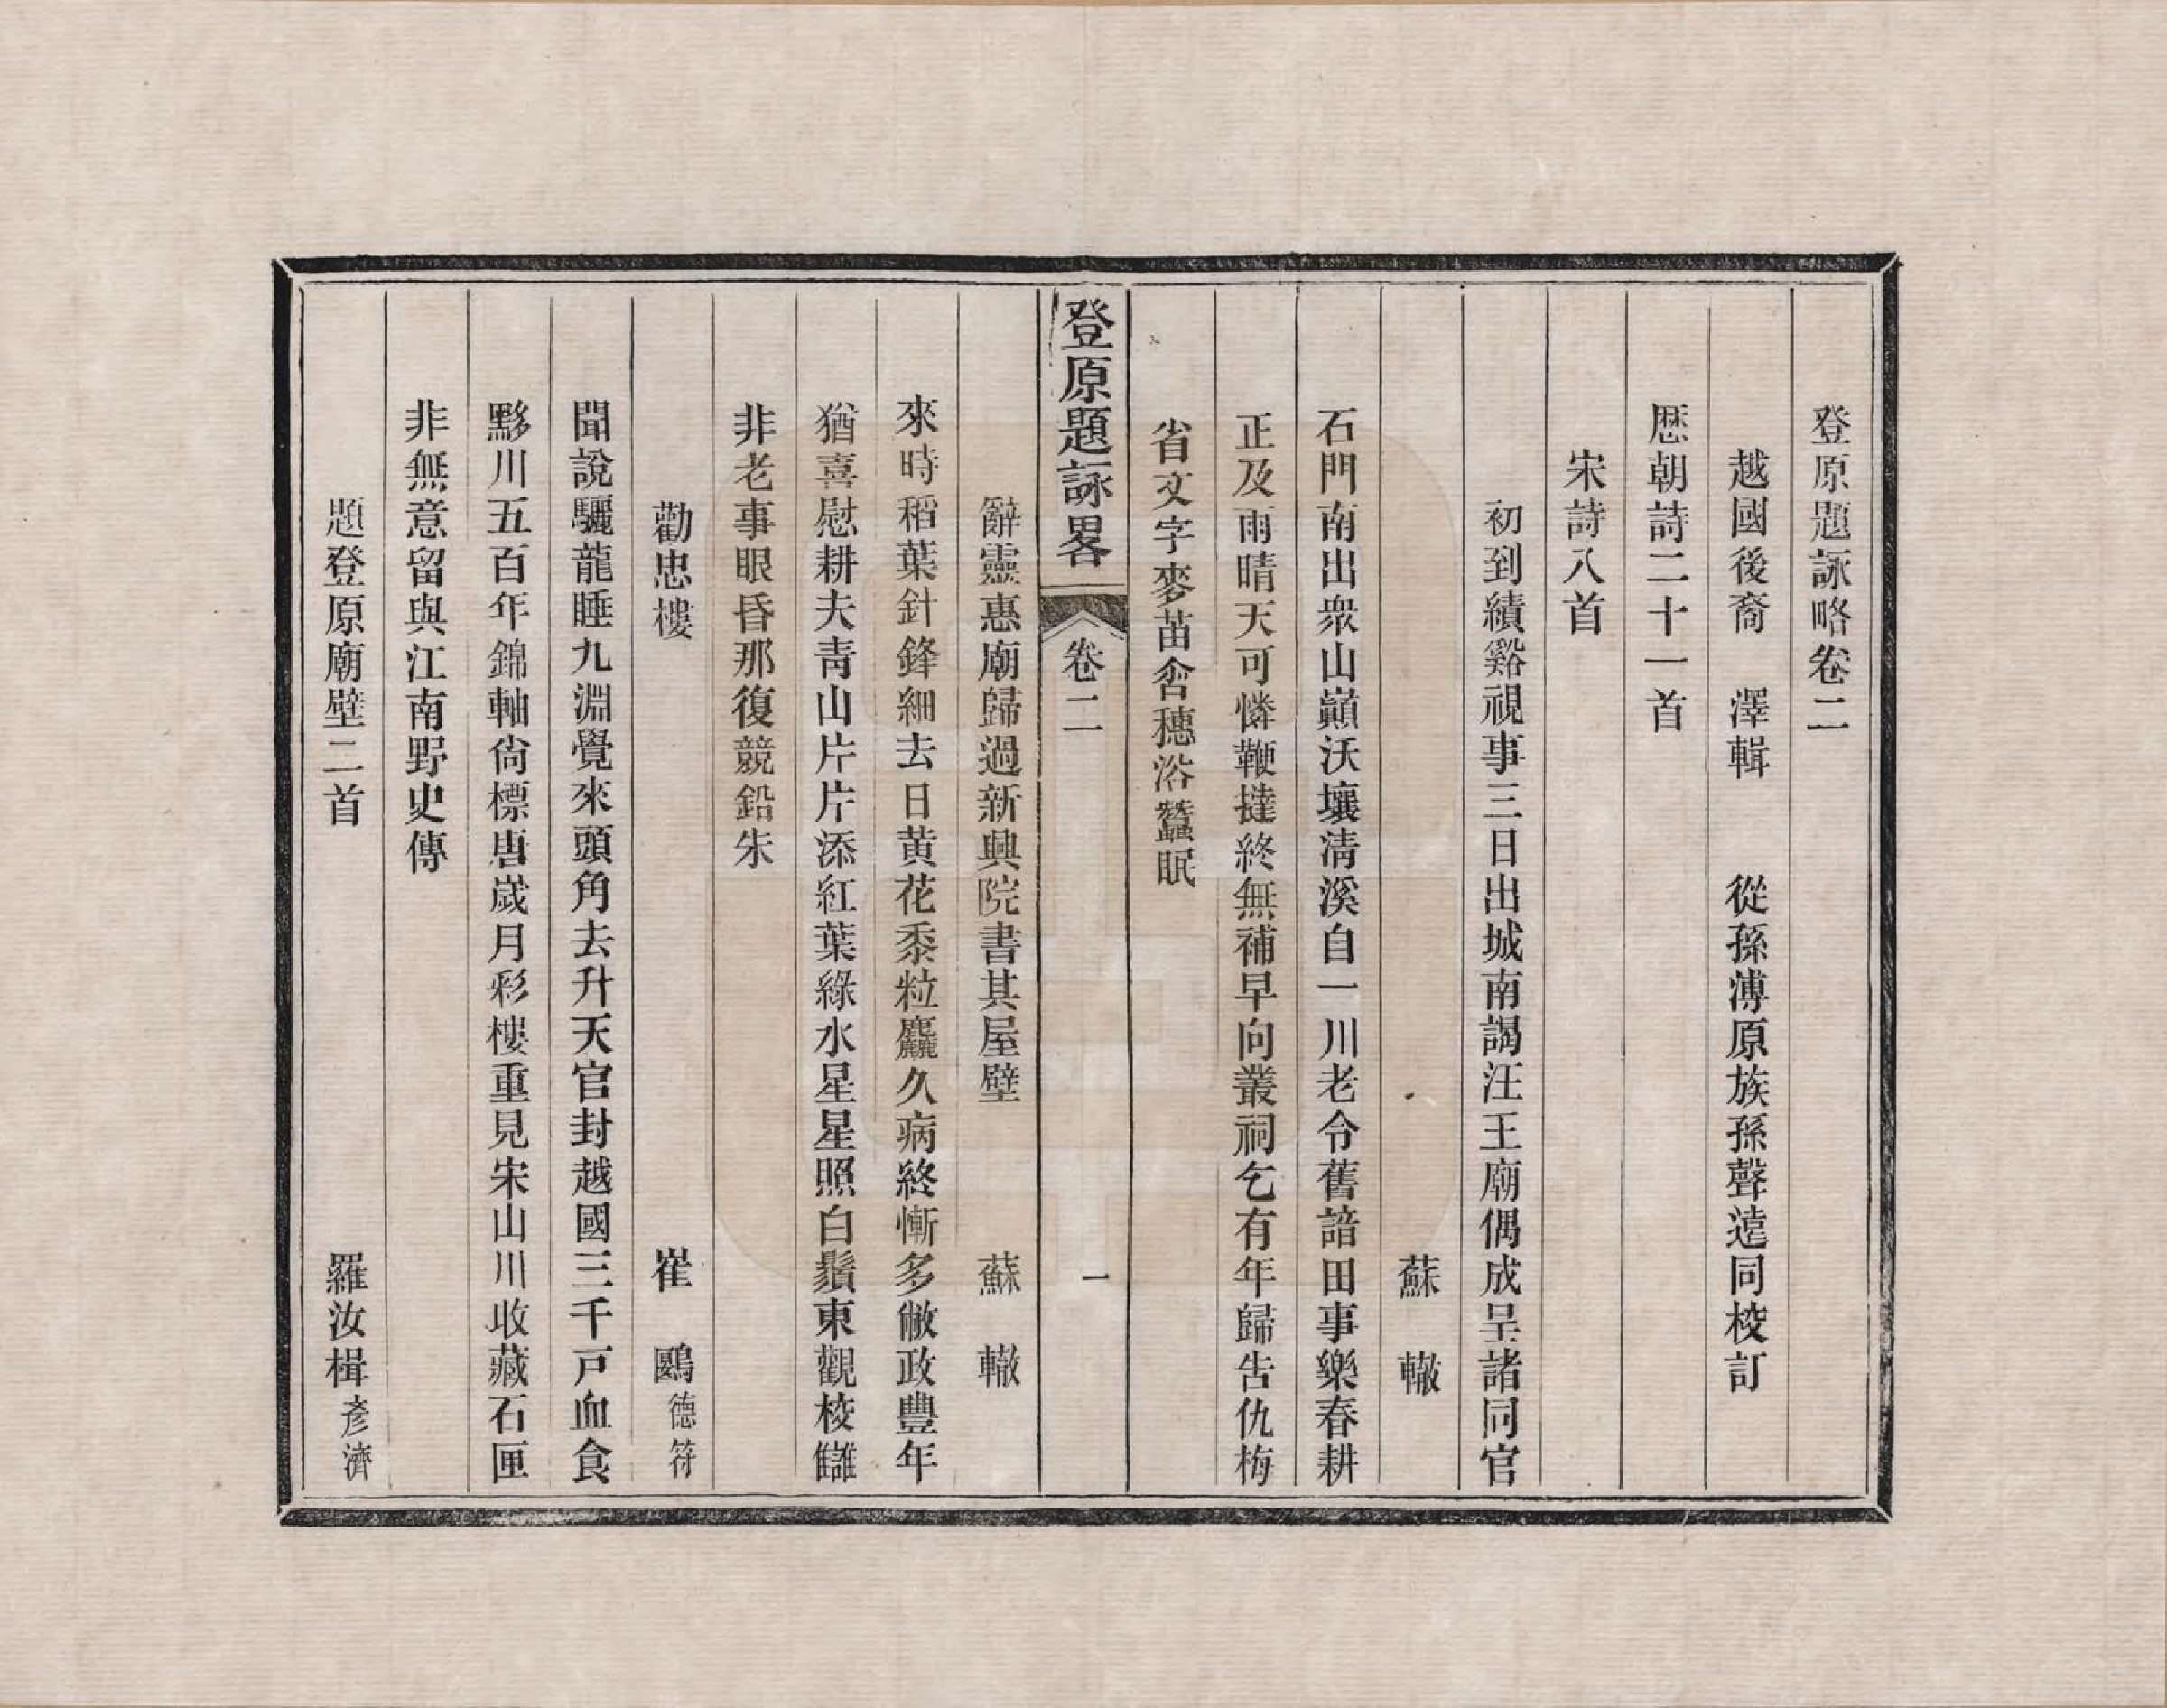 登原題詠略卷二
越國後裔　澤輯　　從孫溥原族孫聲遠同校訂
歷朝詩二十一首
宋詩八首
初到績谿視事三日出城南謁汪王廟偶成呈諸同官
蘇　轍
石門南出衆山巔沃壤淸溪自一川老令舊諳田事樂春耕
正及雨晴天可憐鞭撻終無補早向叢祠乞有年歸吿仇梅
省文字麥苗含穗浴蠶眠
登原題詠畧　卷二　一
辭靈惠廟歸過新興院書其屋壁　　　蘇　轍
來時稻葉針鋒細去日黃花黍粒麤久病終慚多敝政豐年
猶喜慰耕夫靑山片片添紅葉綠水星星照白鬚東觀校讎
非老事眼昏那復競鉛朱
勸忠樓　　　崔　鷗德符
聞說驪龍睡九淵覺來頭角去升天官封越國三千戸血食
黟川五百年錦軸尙標唐歲月彩樓重見宋山川收藏石匣
非無意留與江南野史傳
題登原廟壁二首　　　羅汝楫彥濟